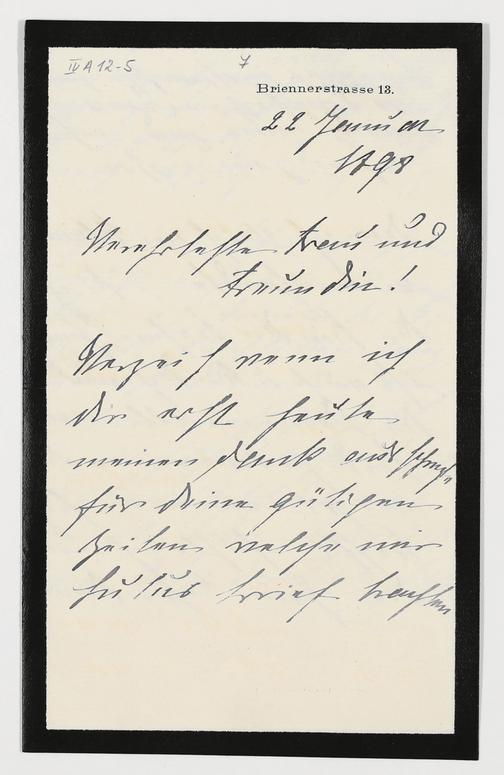 IV A 12-5
7
Briennerstrasse 13.
22 Januar
1898
Verehrteste Frau und
Freundin!
Verzeih wenn ich
dir erst heute
meinen Dank ausspreche
für deine gütigen
Zeilen welche mir
Lulus Brief brachten